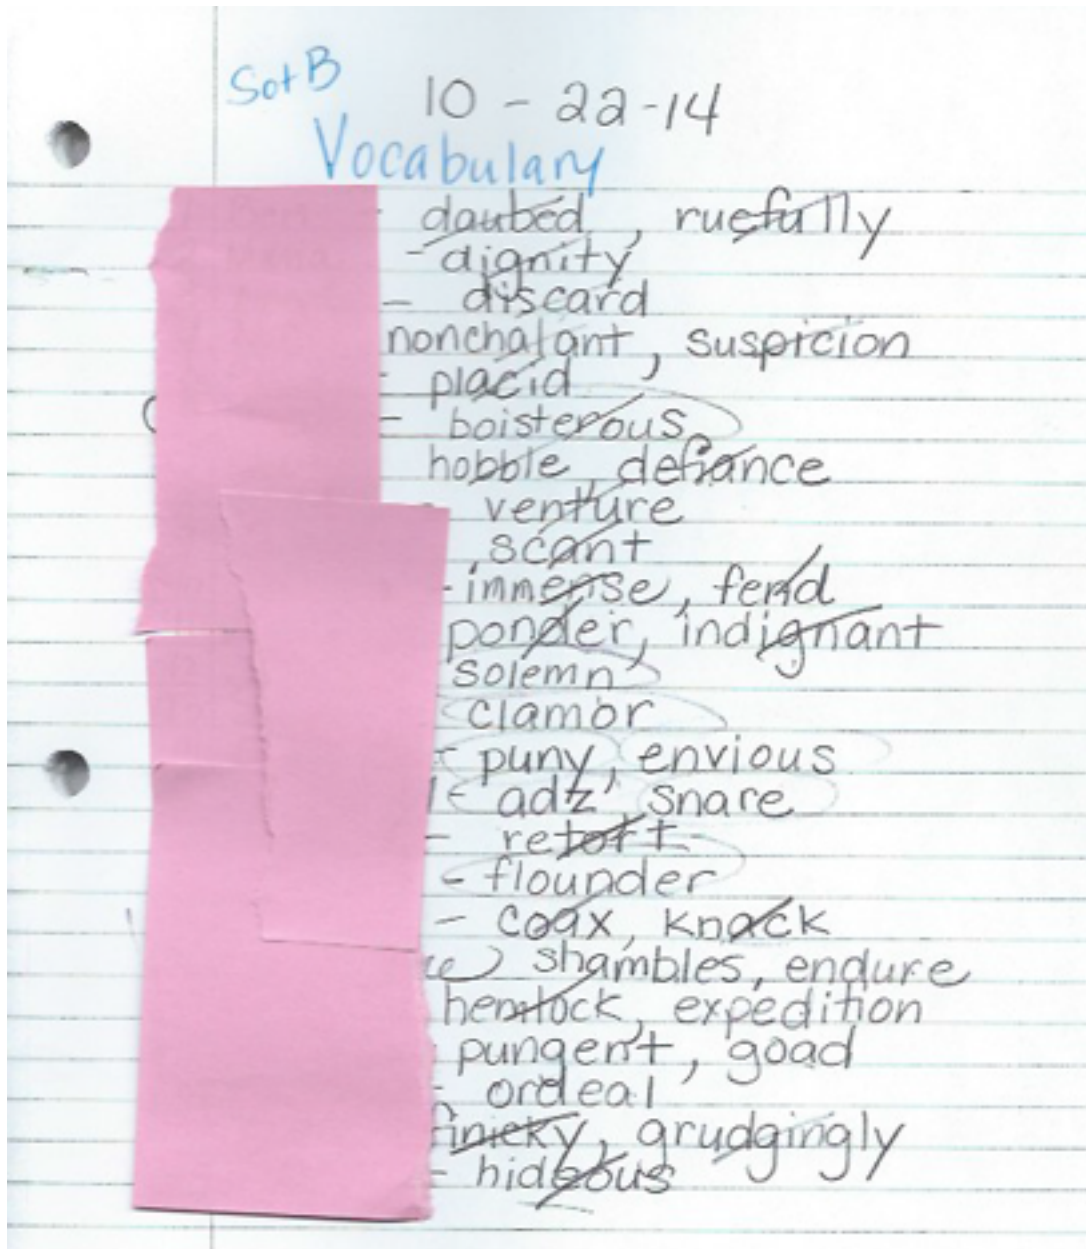 SotB
10-22-14
Vocabulary
- daubed, ruefully
- dignity
- discard
nonchalant, suspicion
- placid
- boisterous
hobble, defiance
- venture
scant
- immense, fend
ponder, indignant
solemn
clamor
- puny, envious
- adz, snare
- retort
- flounder
- coax, knack
shambles, endure
hemlock, expedition
pungent, goad
- ordeal
finicky, grudgingly
- hideous